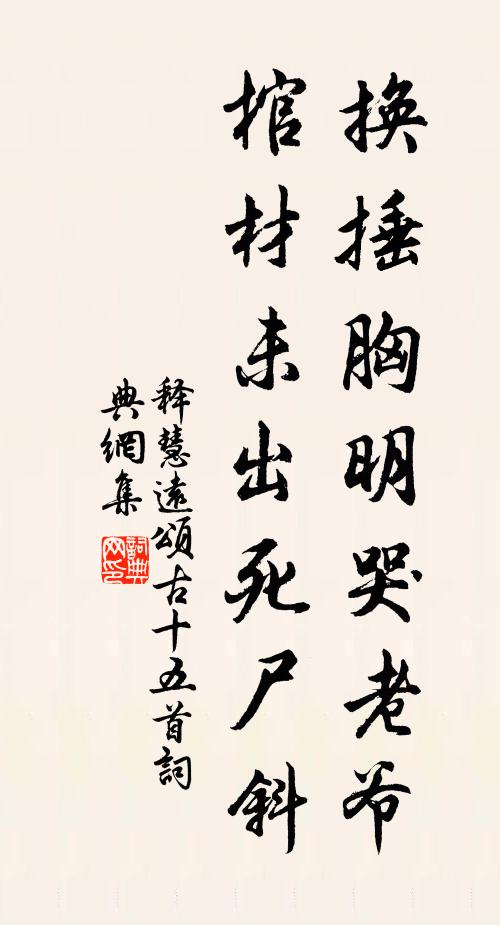 换捶胸明哭老爷
棺材未出死尸斜
释慧远頌古十五首詞
典網集
詞典网印